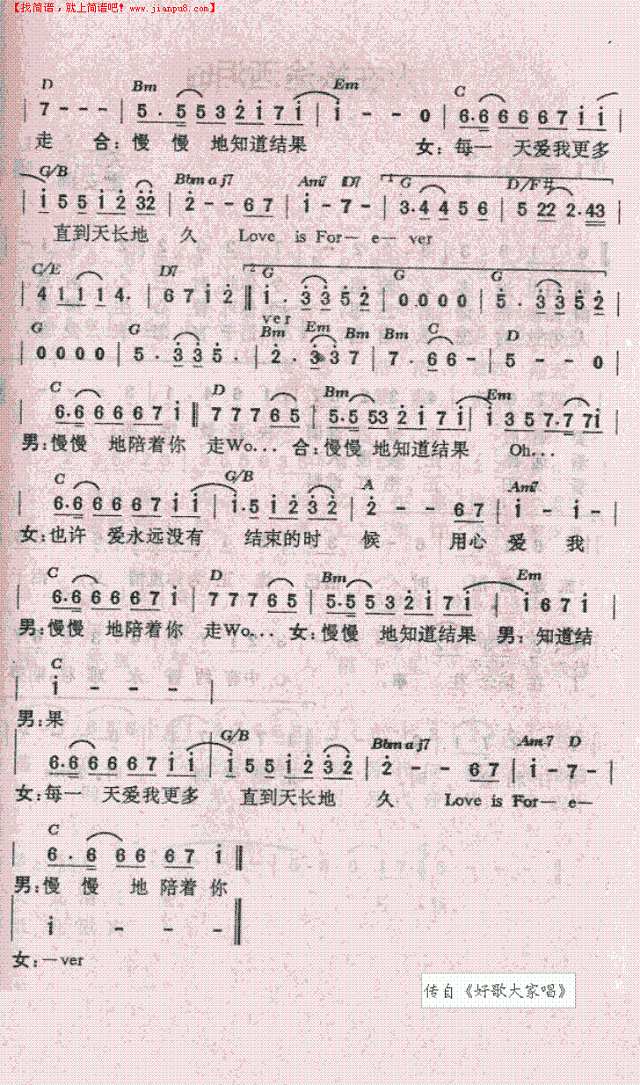 【找简谱，就上简谱吧! www.jianpu8.com】
D Bm Em C
7 - - - | 5 . 5 5 3 2 1 7 1 | 1 - - 0 | 6·6 6 6 6 7 1 1
走 合:慢 慢 地知道结果 女:每一 天爱我更多
G/B Bbmaj7 Am7 D7 1 G D/F#
1 5 5 1 2 32 | 2 - - 6 7 | 1 - 7 - | 3·4 4 5 6 | 5 22 2·43
直到天长地 久 Love is For- e- ver
C/E D7 2 G G G
4 1 1 1 4· | 6 7 1 2 || 1 · 3 3 5 2 | 0 0 0 0 | 5 · 3 3 5 2 |
ver
G G Bm Em Bm Bm C D
| 0 0 0 0 | 5 · 3 3 5 · | 2 · 3 3 7 | 7 · 6 6 - | 5 - - 0 |
C D Bm Em
| 6·6 6 6 6 7 1 || 7 7 7 6 5 | 5·5 53 2 1 7 1 | 1 3 5 7·7 71 |
男:慢慢 地陪着你 走Wo... 合:慢慢 地知道结果 Oh...
C G/B A Am7
| 6·6 6 6 6 7 1 1 | 1·5 1 2 3 2 | 2 - - 6 7 | 1 - 1 - |
女:也许 爱永远没有 结束的时 候 用心 爱 我
C D Bm Em
| 6·6 6 6 6 7 1 | 7 7 7 6 5 | 5·5 5 5 3 2 1 7 1 | 1 6 7 1 |
男:慢慢 地陪着你 走Wo... 女:慢慢 地知道结果 男:知道结
C
| 1 - - - |
男:果
G/B Bbmaj7 Am7 D
| 6·6 6 6 6 7 1 1 | 1 5 5 1 2 3 2 | 2 - - 6 7 | 1 - 7 - |
女:每一 天爱我更多 直到天长地 久 Love is For- e-
C
| 6 · 6 6 6 6 7 1 ||
男:慢 慢 地 陪着 你
| 1 - - - ||
女:-ver
传自《好歌大家唱》